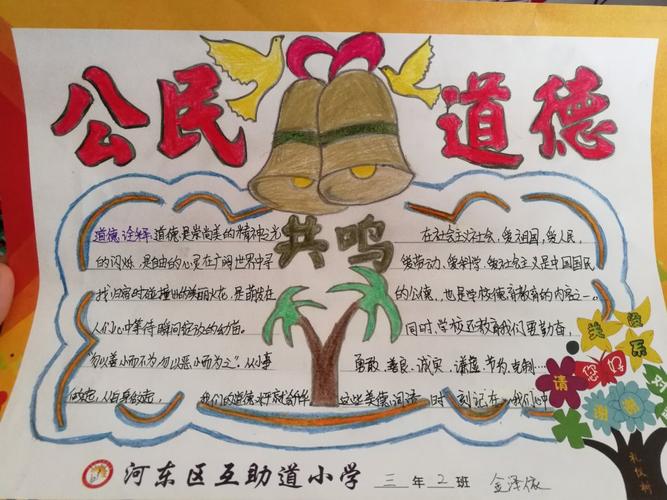 公民道德
共鸣
道德诠释:道德是崇尚美的精神之光
的闪烁,是自由的心灵在广阔世界中寻
找归宿时碰撞出的绚丽火花,是萌发在
人们心中等待瞬间绽放的幼苗。
"勿以善小而不为勿以恶小而为之",从小事
做起,从自身做起, 我们的道德水平就会升华。
在社会主义社会,爱祖国,爱人民,
爱劳动、爱科学、爱社会主义是中国国民
的公德,也是学校德育教育的内容之一。
同时,学校还教育我们要勤奋,
勇敢、善良、诚实、谦逊、节约、克制……
这些美德,词语 时刻记在 我们心中
没关系
请
您好
谢谢
礼仪树
河东区互助道小学 三年2班